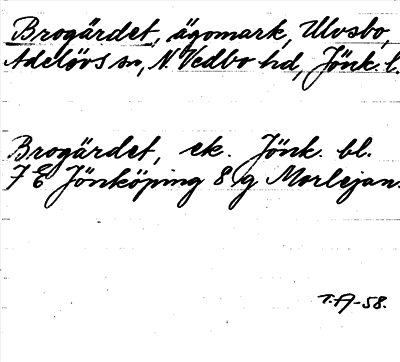 Brogärdet, ägomark, Ulvsbo,
Adelövs sn, N. Vedbo hd, Jönk. l.
Brogärdet, ek. Jönk. bl.
7 E Jönköping 8 g Morlejan.
T.A-58.